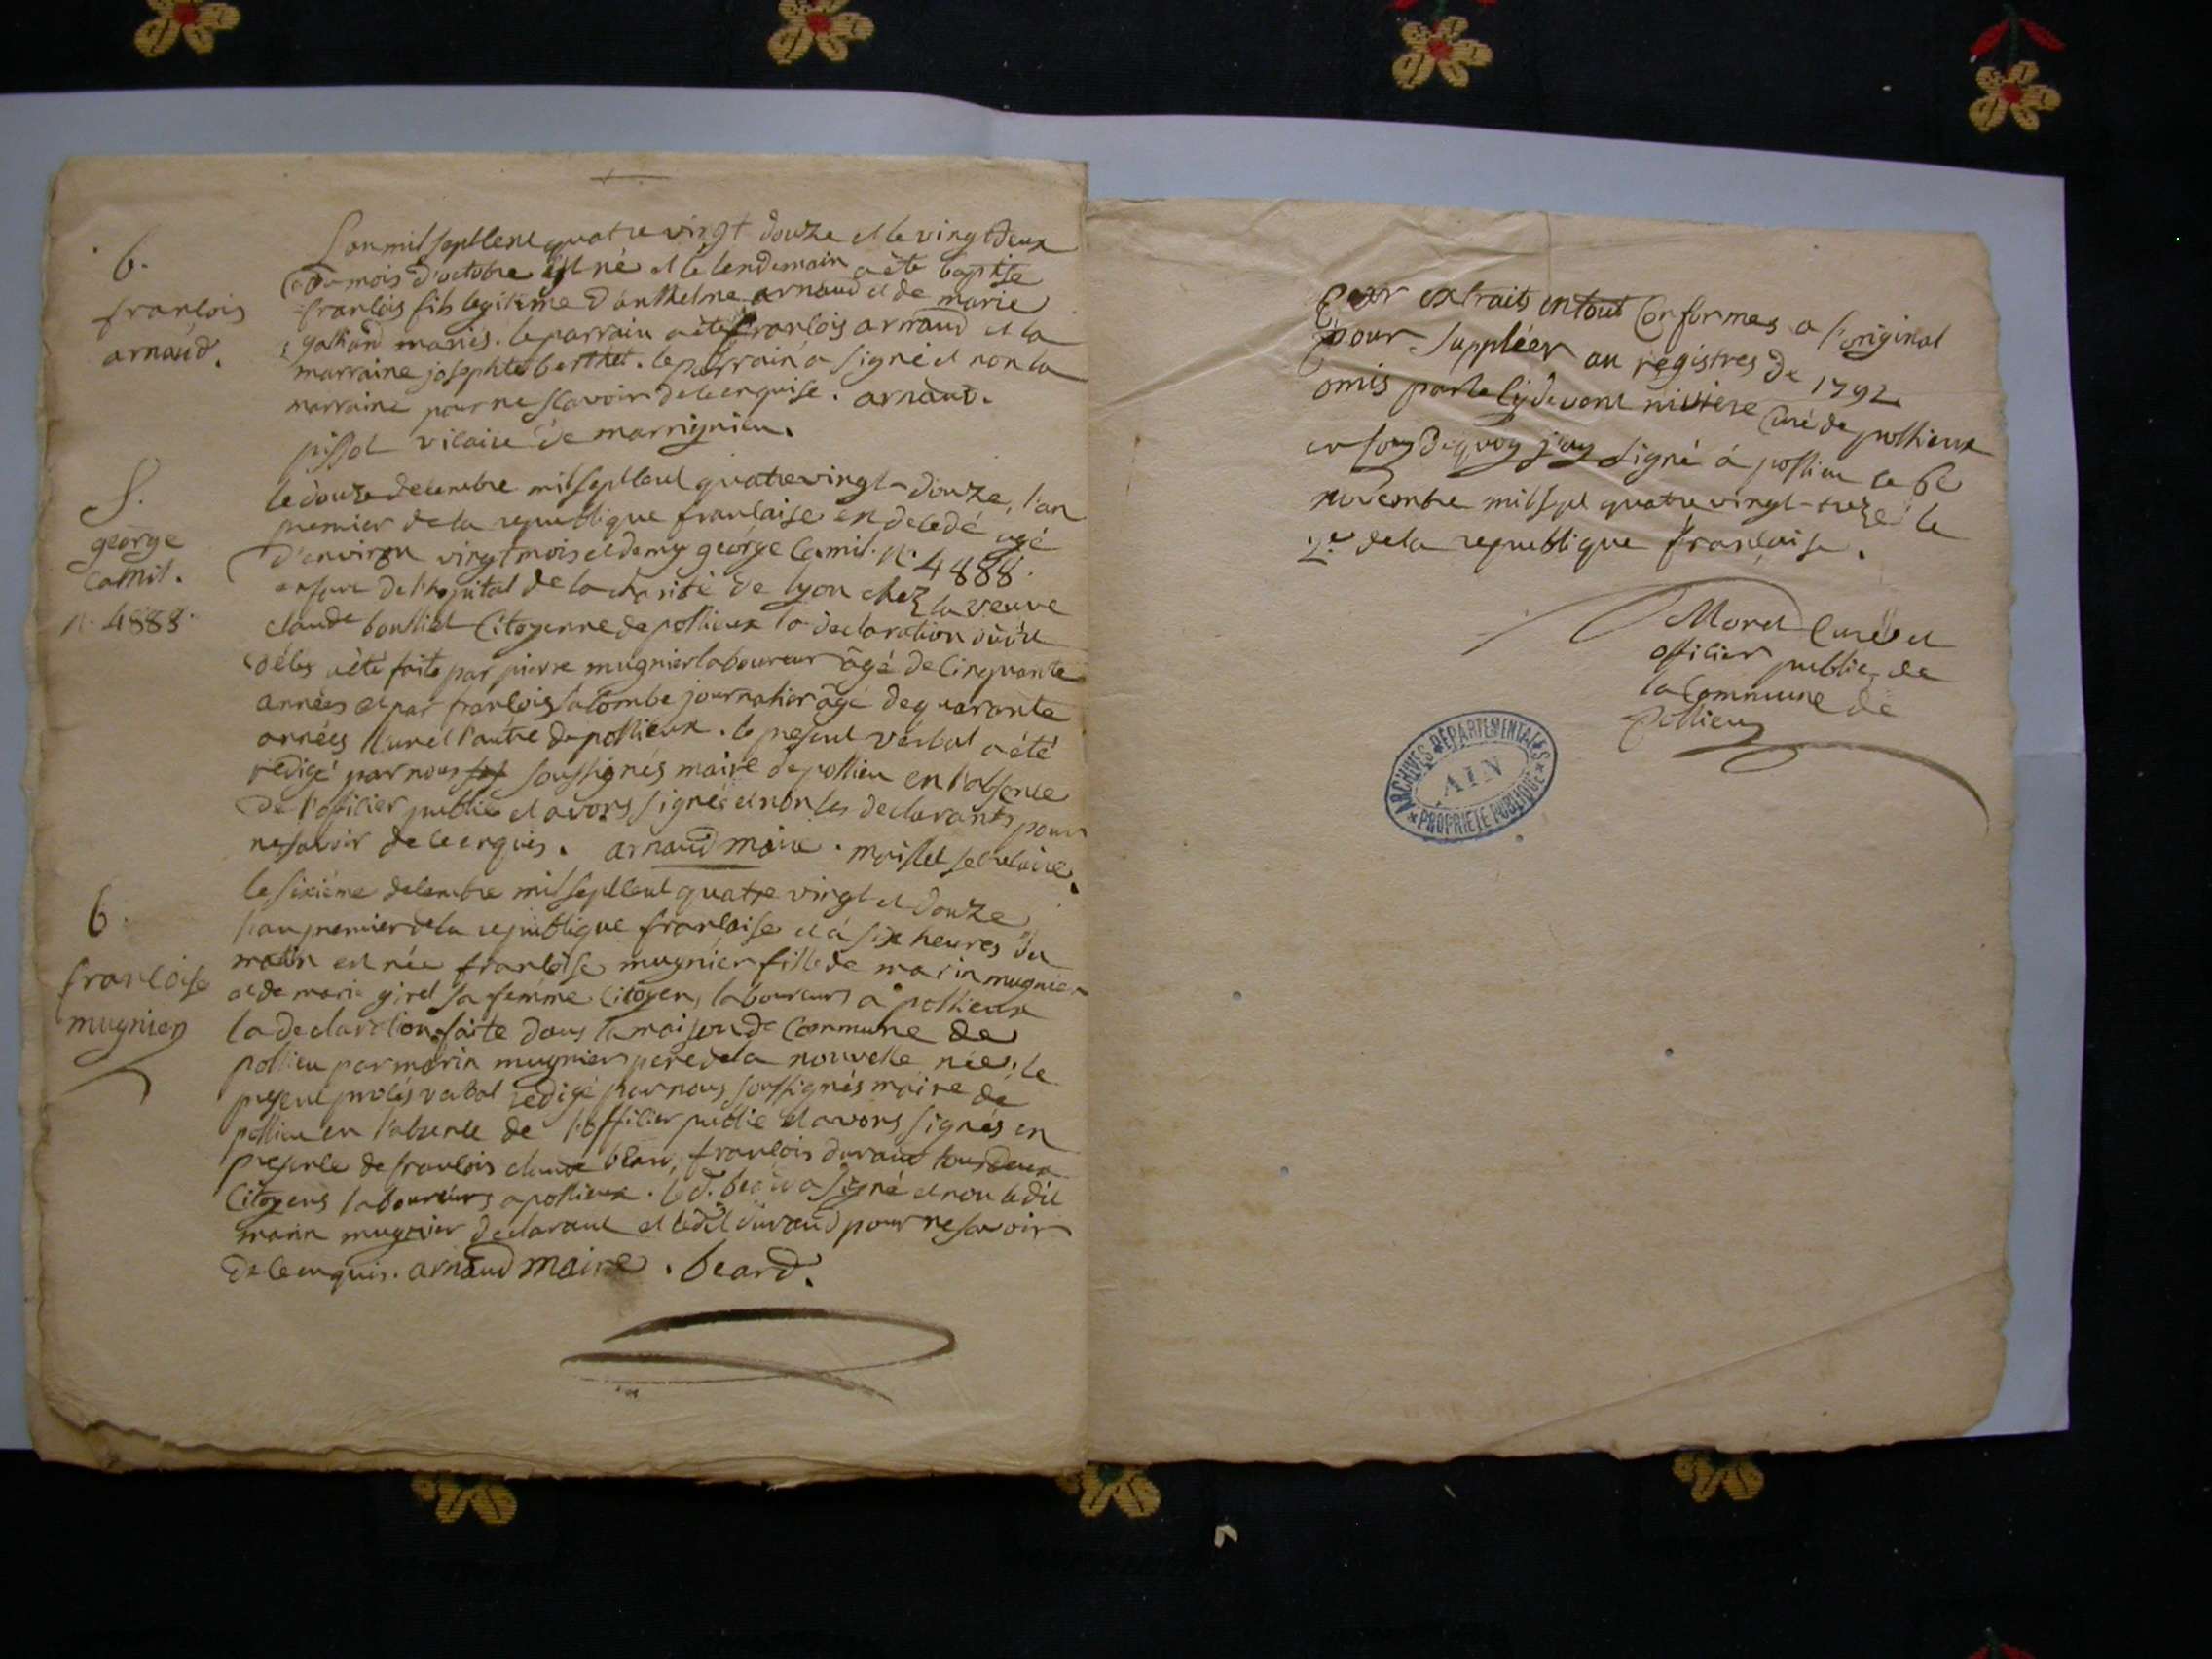 b.
francois
arnaud.
L'an mil sept cent quatre vingt douze et le vingt deux
du mois d'octobre est né et le lendemain a été baptisé
francois fils legitime d'anthelme arnaud et de marie
galland mariés. le parrain a été francois arnaud et la
marraine josephte berthet. le parrain a signé et non la
marraine pour ne scavoir de ce enquise. arnaud.
pissot vicaire de marrignieu.
S.
george
camil.
n. 4888.
le douze decembre mil sept cent quatre vingt-douze, l'an
premier de la republique francaise est decedé agé
d'environ vingt mois et demy george camil. n. 4888.
enfant de l'hopital de la charité de lyon chez la veuve
claude bouillet citoyenne de pollieux la declaration du dit
décès a été faite par pierre mugnier laboureur âgé de cinquante
années et par francois lacombe journalier âgé de quarante
années l'un et l'autre de pollieux. le present verbal a été
redigé par nous soussignés maire de pollieu en l'absence
de l'officier public et avons signé et non les declarants pour
ne savoir de ce enquis. arnaud maire. moillet secretaire.
b.
francoise
mugnier
le sixième decembre mil sept cent quatre vingt et douze
l'an premier de la republique francaise et à six heures du
matin est née francoise mugnier fille de marin mugnier
et de marie girel sa femme citoyens, laboureurs a pollieux
la declaration faite dans la maison de commune de
pollieu par marin mugnier pere de la nouvelle née; le
present procès verbal redigé par nous soussignés maire de
pollieu en l'absence de l'officier public et avons signés en
presence de francois claude beard, francois durand tous deux
citoyens laboureurs a pollieux. le d. beard a signé et non le dit
marin mugnier declarant et le dit durand pour ne savoir
de ce enquis. arnaud maire. beard.
Pour extraits en tout conformes a l'original
pour suppléer au registres de 1792
omis par le cy devant riviere curé de pollieux
en foy de quoy j'ay signé à pollieu le 6e
novembre mil sept quatre vingt-treze le
2e de la republique francaise.
Morel curé et
officier public de
la commune de
Pollieu
ARCHIVES DÉPARTEMENTALES
AIN
PROPRIÉTÉ PUBLIQUE